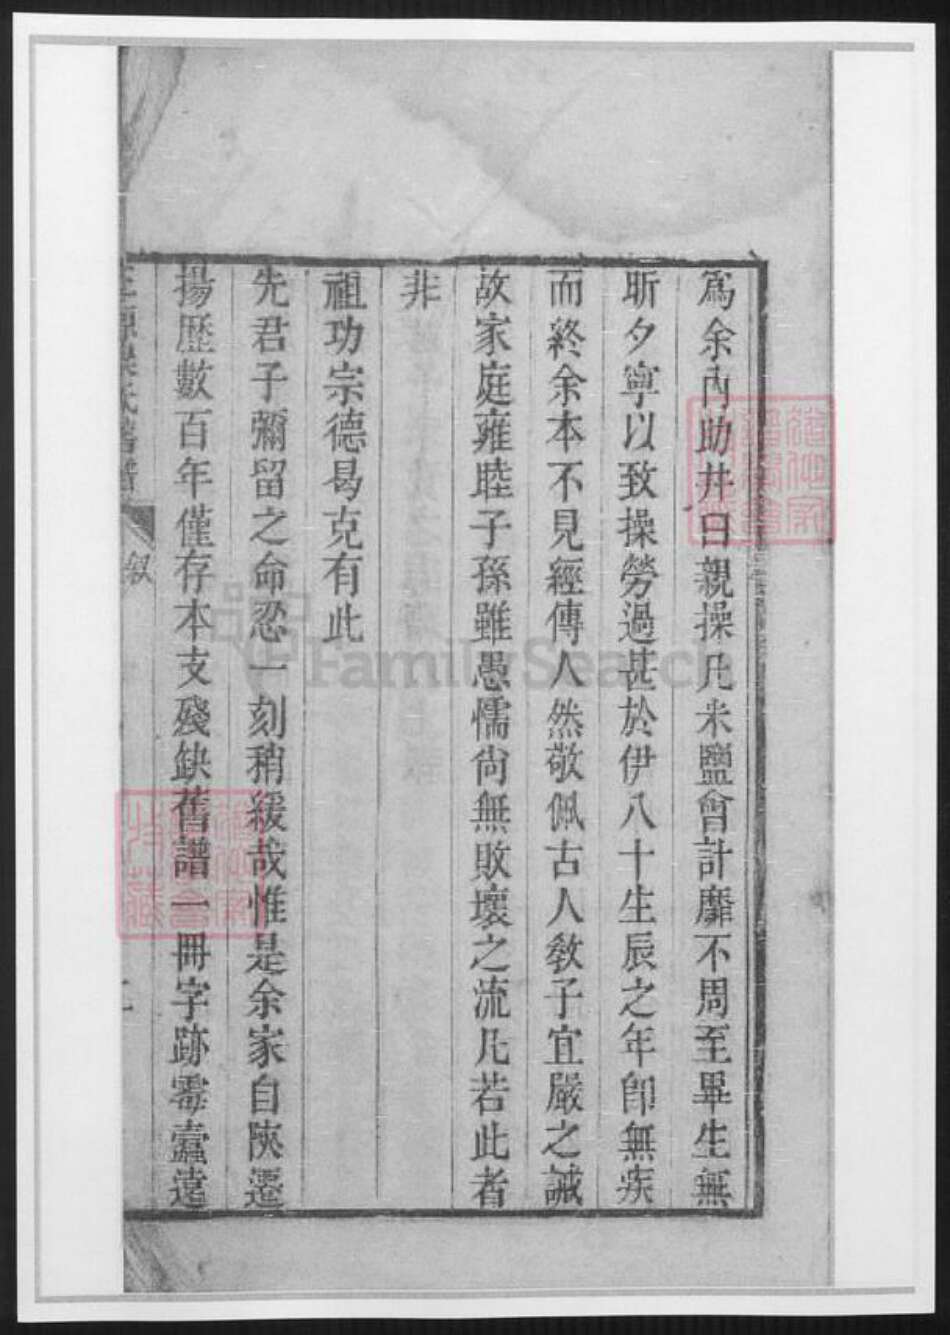 為余內助井臼親操凡米鹽會計靡不周至畢生無
昕夕寧以致操勞過甚於伊八十生辰之年卽無疾
而終余本不見經傳人然敬佩古人教子宜嚴之誡
故家庭雍睦子孫雖愚懦尙無敗壞之流凡若此者
非
祖功宗德曷克有此
先君子彌留之命忍一刻稍緩哉惟是余家自陝遷
揚歷數百年僅存本支殘缺舊譜一冊字跡霉蠹遠
氏舊譜
叙
二
FamilySearch